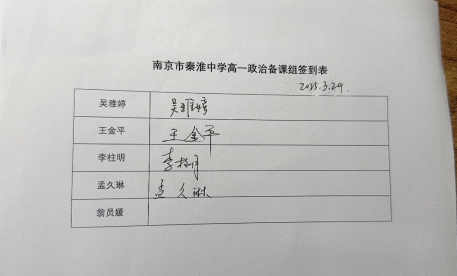 南京市秦淮中学高一政治备课组签到表
2025.3.24.
吴雅婷 吴雅婷
王金平 王金平
李柱明 李柱明
孟久琳 孟久琳
翁员媛